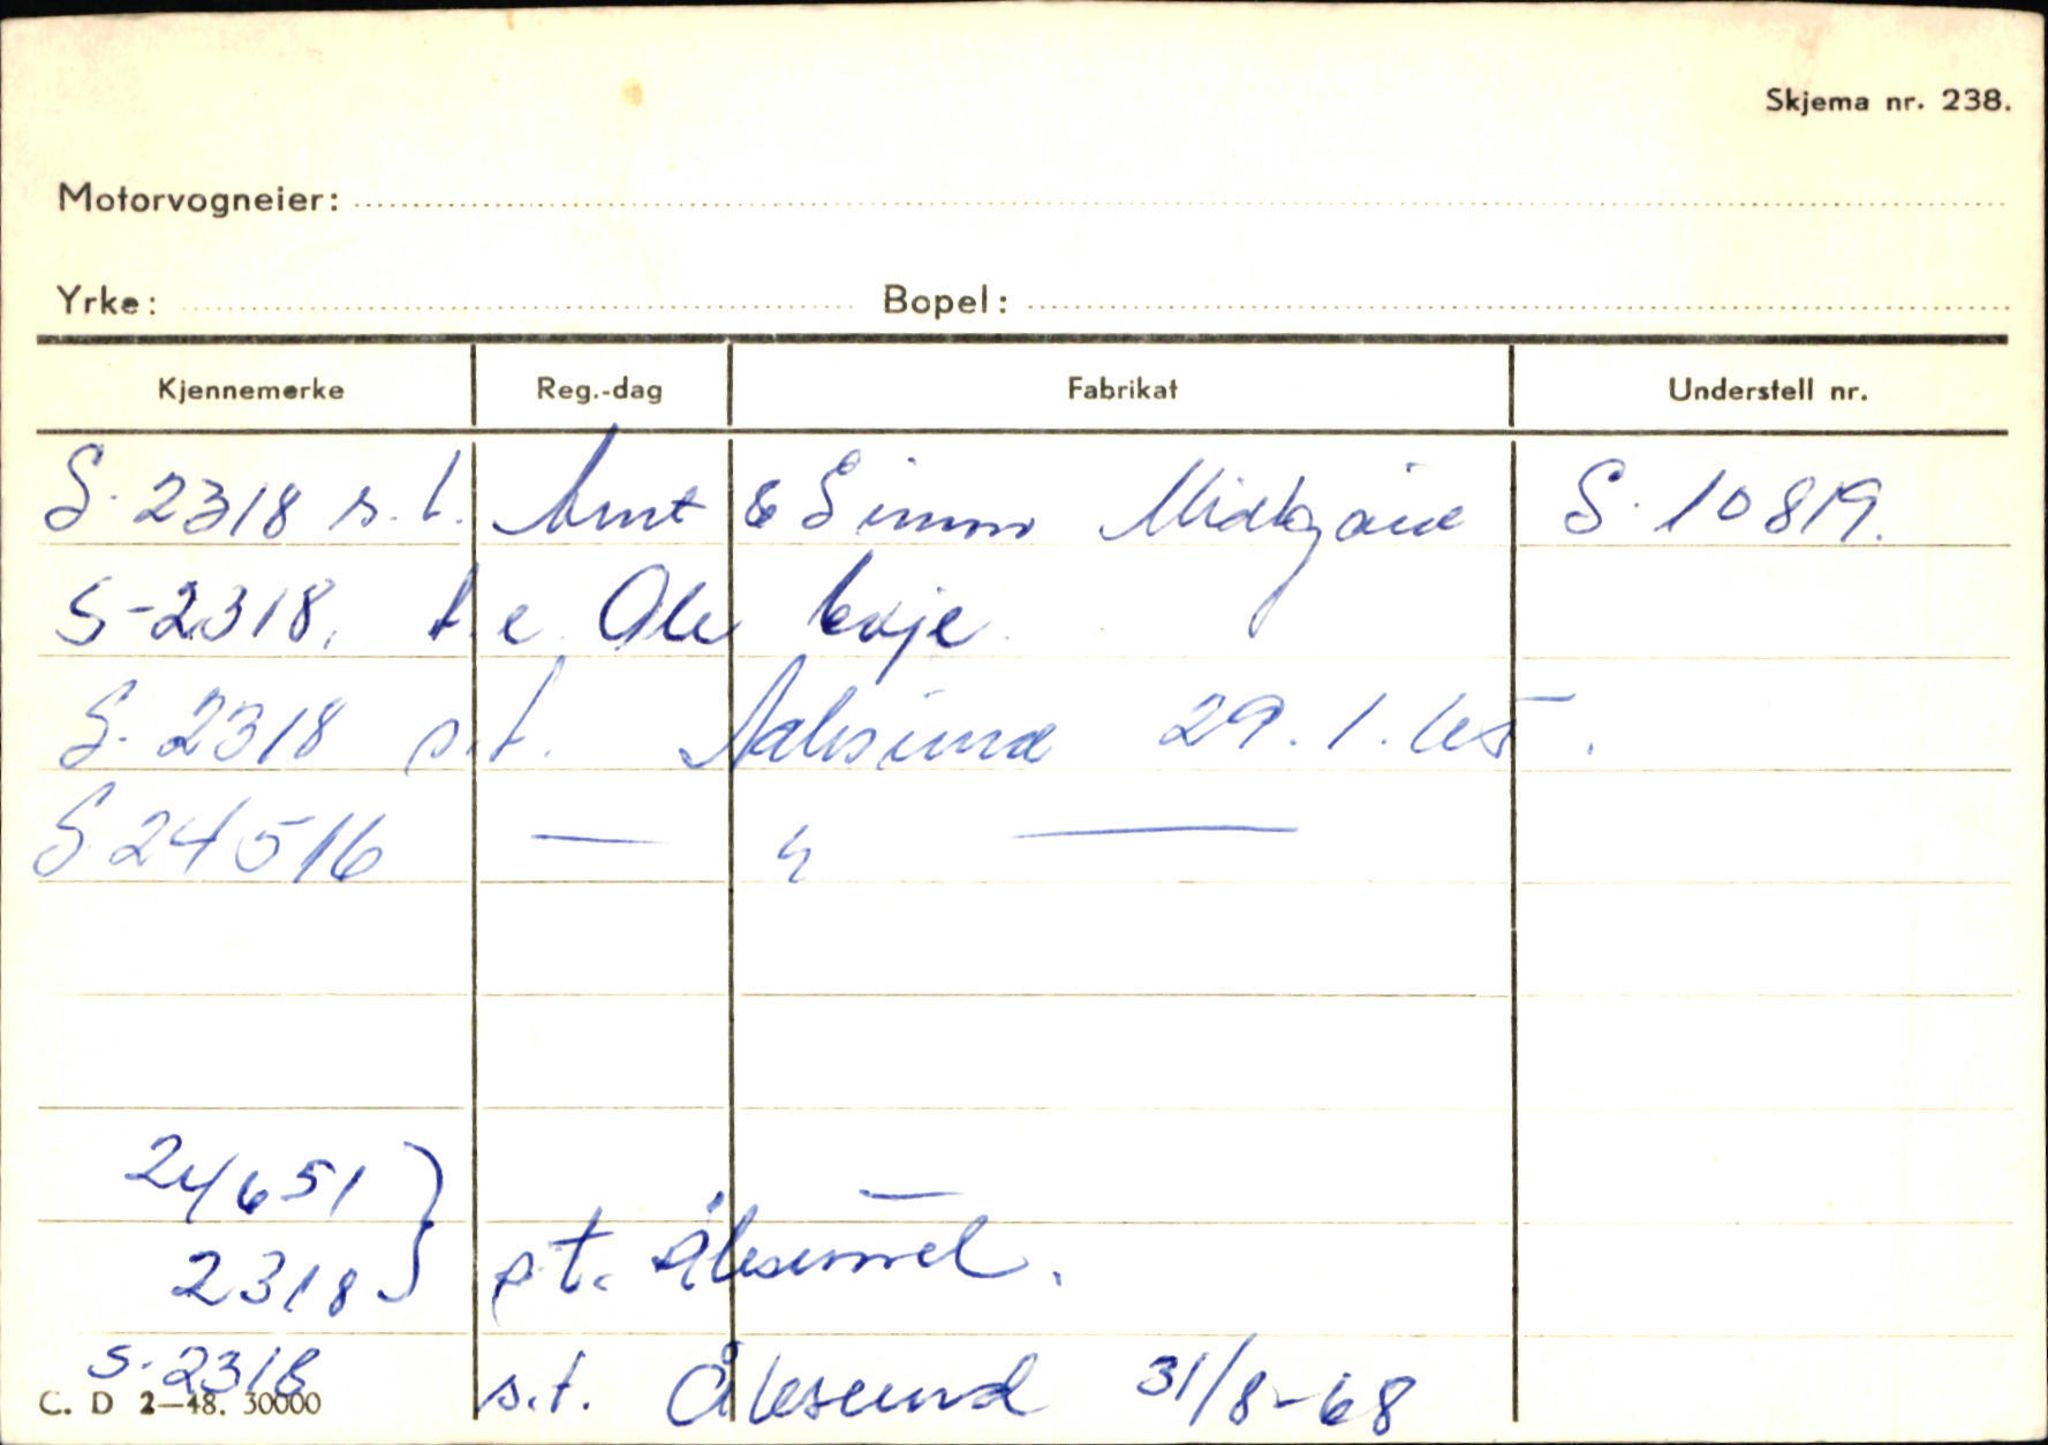 Skjema nr. 238.
Motorvogneier:
Yrke: Bopel:
Kjennemerke Reg.-dag Fabrikat Understell nr.
S. 2318 s.t. Arnt & Simon Midtgård S. 10819.
S-2318. t.e. Ole
S. 2318 s.t. Aalesund 29.1.65.
S 24516 — " —
24651
2318 } p.t. Ålesund.
S. 2318 s.t. Ålesund 31/8-68
C. D 2—48. 30000